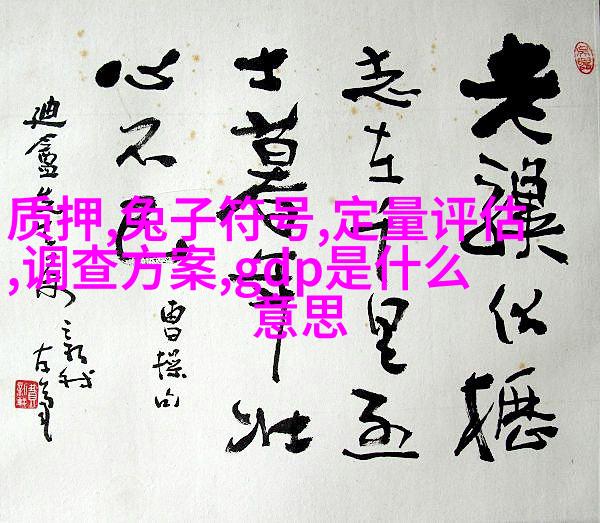 老驥伏櫪
志在千里烈
士暮年壯
心不已
曹操句
迪盦先生屬
左笔
质押,兔子符号,定量评估
,调查方案,gdp是什么
意思